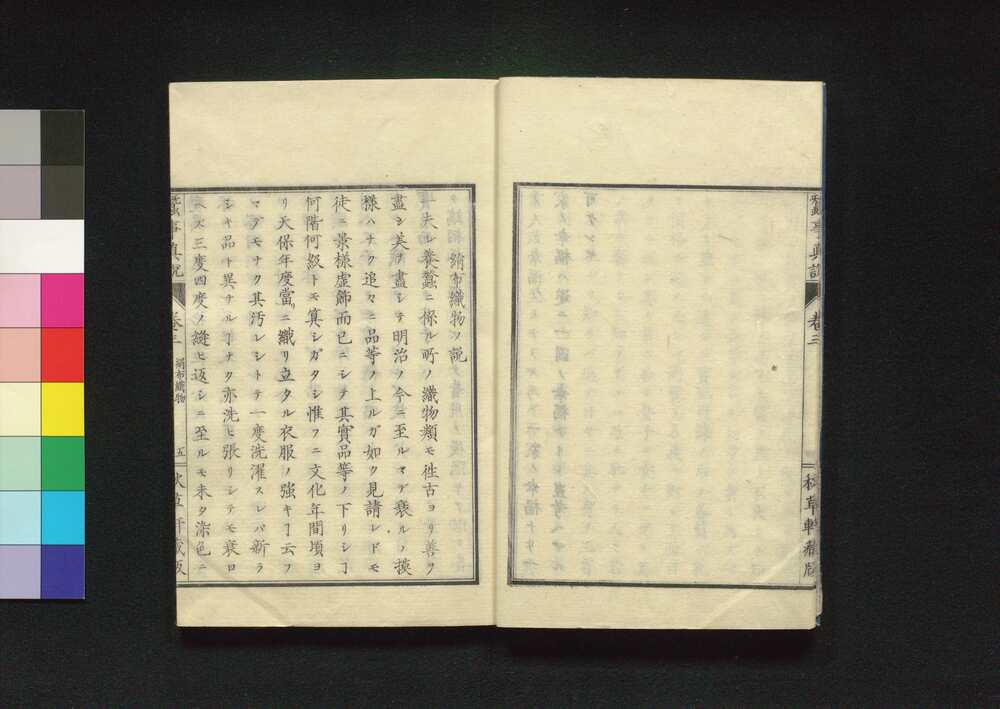 蠶事眞説
卷三
秋草軒藏版
絹布織物ノ説
夫レ養蠶ニ係ル所ノ織物類モ徃古ヨリ善ヲ
盡シ美ヲ盡シテ明治ノ今ニ至ルマデ衰ルノ摸
様ハナク追々ニ品等ノ上ルガ如ク見請レドモ
徒ニ景様虚飾而已ニシテ其實品等ノ下リシヿ
何階何級トモ算シガタシ惟フニ文化年間頃ヨ
リ天保年度當ニ織リ立タル衣服ノ強キヿ云フ
マデモナク其汚レシトテ一度洗濯スレバ新ラ
シキ品ト異ナルヿナク亦洗ヒ張リシテモ衰ロ
ス三度四度ノ縫ヒ返シニ至ルモ未タ染色ニ
蠶事眞説
卷三
絹布織物
五
秋草軒藏版